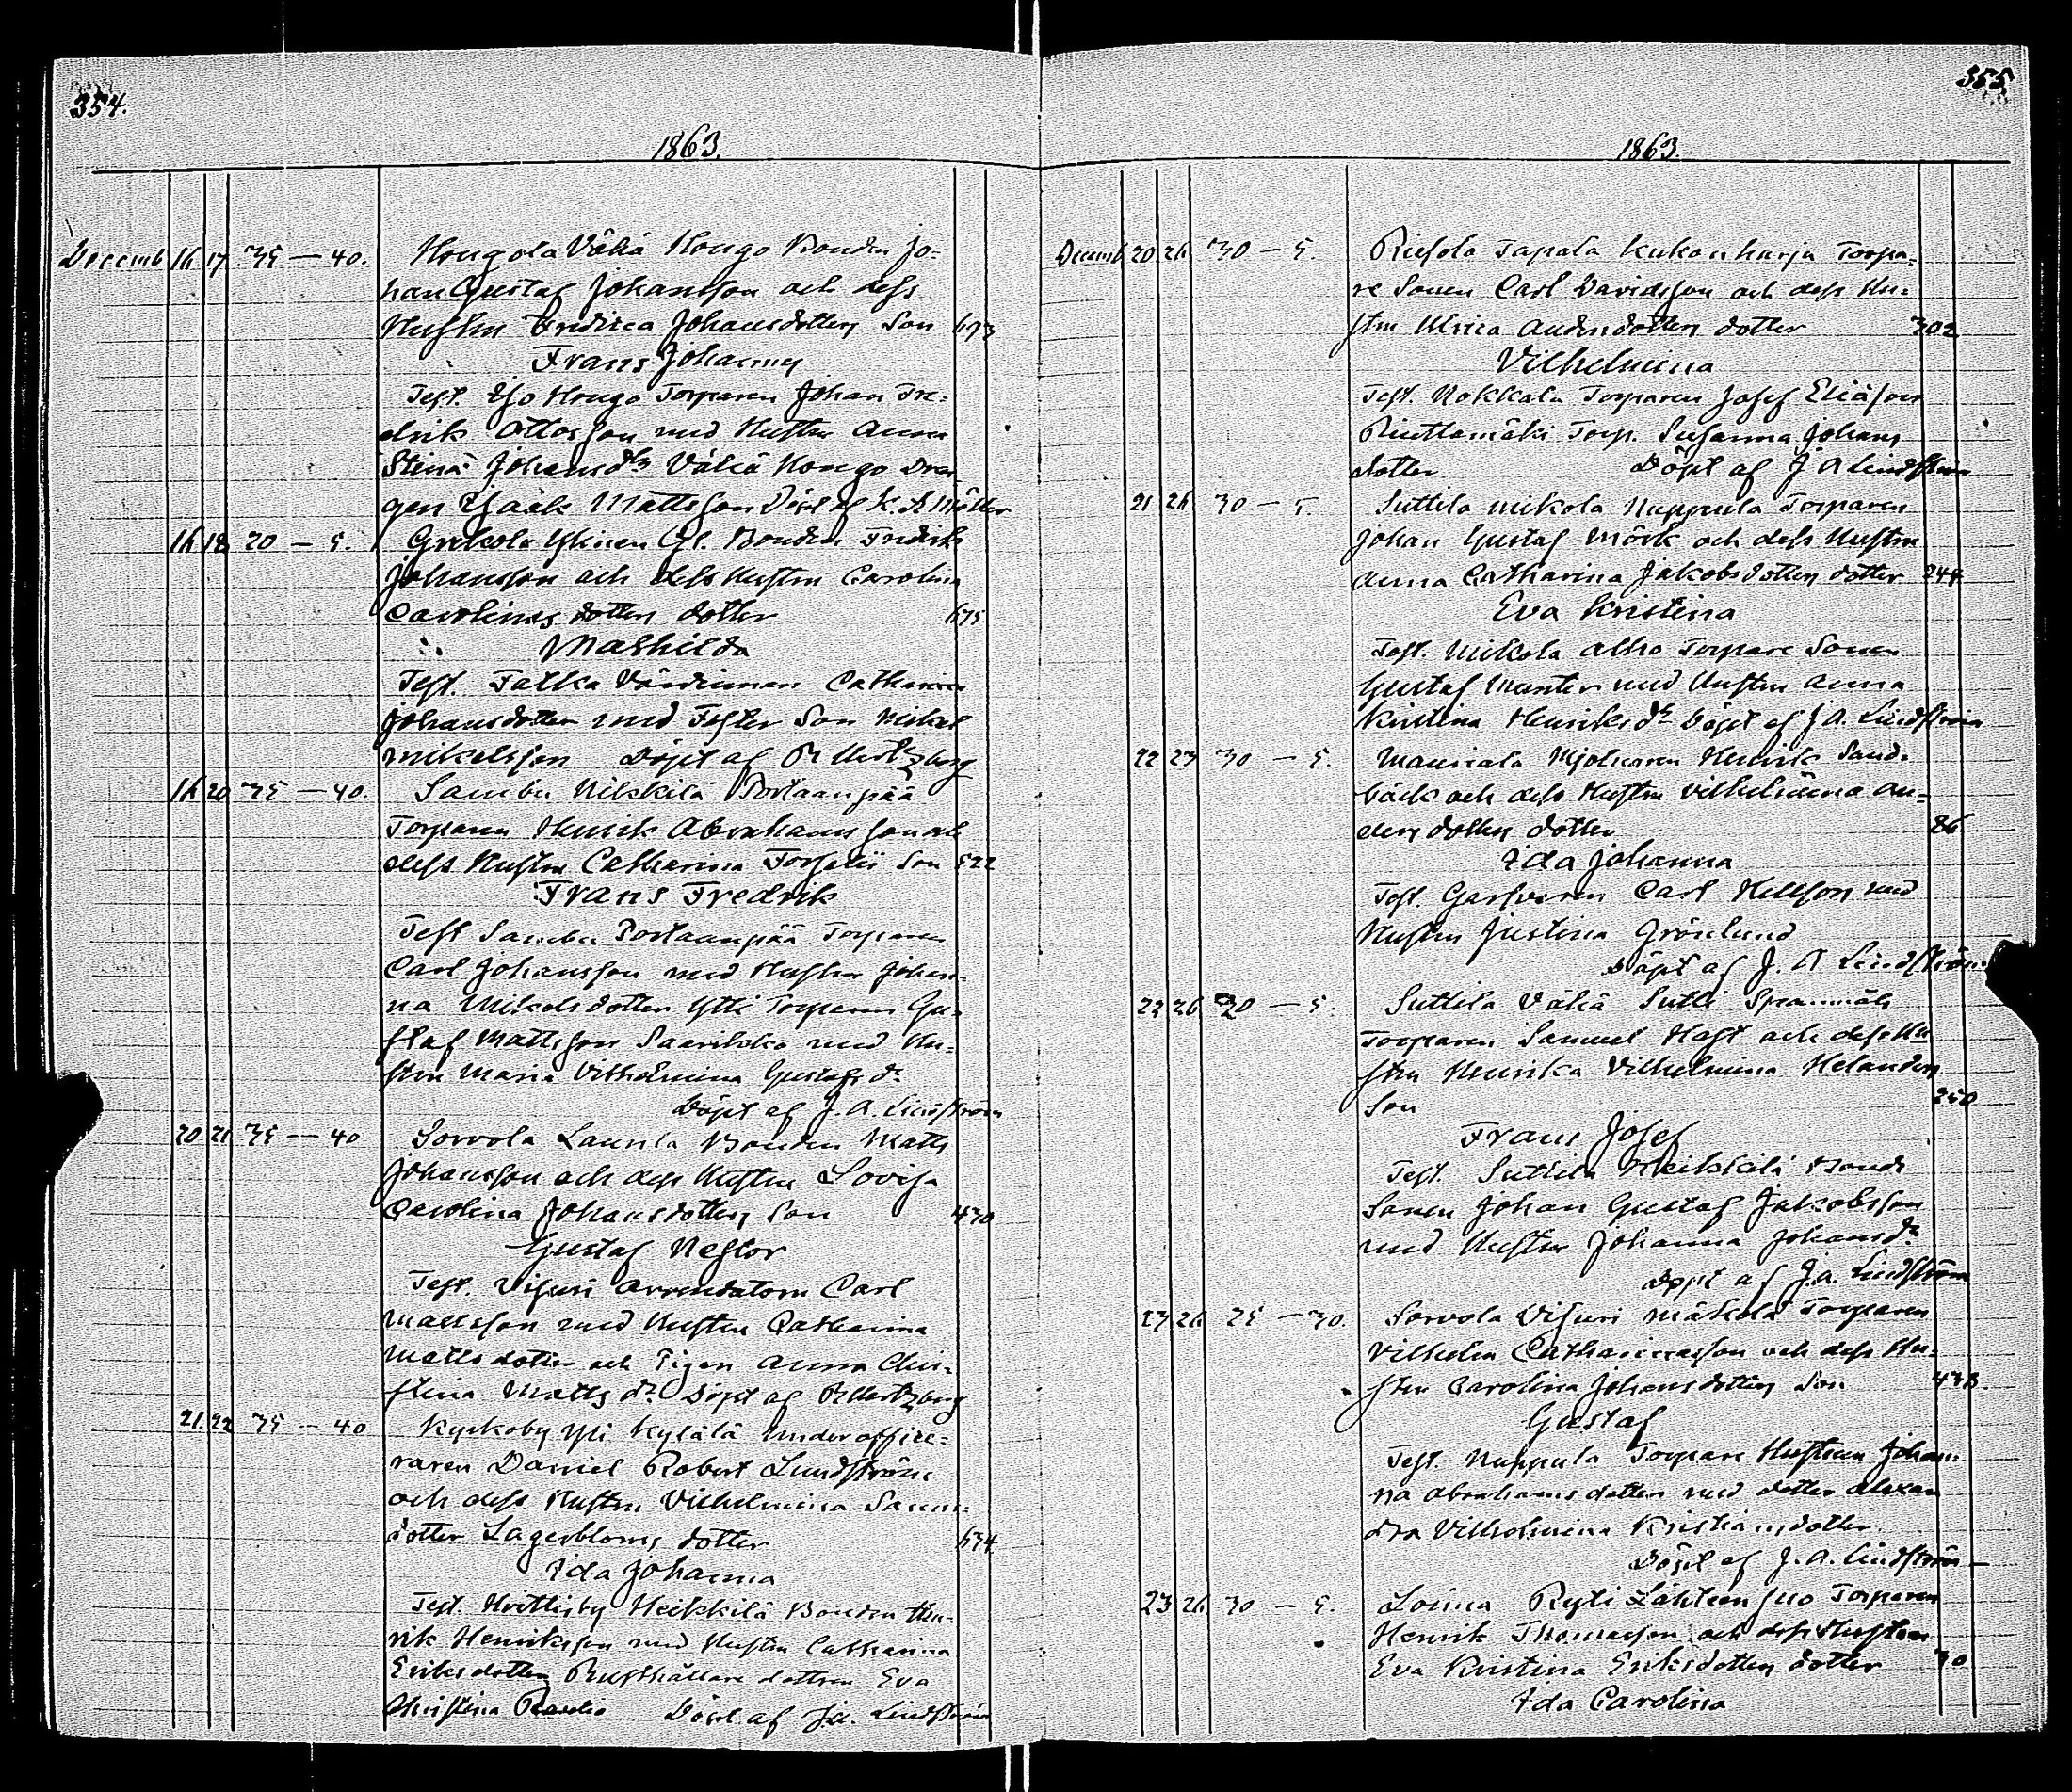 354.
1863.
Decemb 16 17 35 — 40. Hongola Vähä Hongo Bonden Jo-
han Gustaf Johansson och dess
Hustru Fredrica Johansdotters Son 693
Frans Johannes
Test. Yso Hongo Torparen Johan Fre-
drik Ottosson med Hustru Anna
Stina Johansdtr Vähä Hongo Dren-
gen Isaak Mattsson Döpt af K. A Möller
16 18 20 — 5. Grekola Bonden Fredrik
Johansson och dess Hustru Carolina
Carolinas dotters dotter 675.
Mathilda
Test. Talka Värdinnan Catharina
Johansdotter med Foster Son Mickel
Mikelsson Döpt af R Hertzberg
16 20 35 — 40. Sambu Nikkilä Portaanpää
Torparen Henrik Abrahamsson och
dess Hustru Catharina Forselii Son 522
Frans Fredrik
Test Sambu Portaanpää Torparen
Carl Johansson med Hustru Johan-
na Mikelsdotter Ytti Torparen Gu-
staf Mattsson Saarikko med Hu-
stru Maria Vilhelmina Gustafsdr
Döpt af J. A. Lindström
20 21 35 — 40 Sorvola Launla Bonden Matts
Johansson och dess Hustru Lovisa
Carolina Johansdotters Son 430
Gustaf Nestor
Test. Visuri Arrendatorn Carl
Mattsson med Hustru Catharina
Mattsdotter och Pigan Anna Chri-
stina Mattsdr Döpt af R Hertzberg
21 22 35 — 40 Kyrkoby Yli Kylälä Underoffice-
raren Daniel Robert Lundström
och dess Hustru Vilhelmina Samu-
dotter Lagerbloms dotter 634
Ida Johanna
Test. Hvittisby Heikkilä Bonden Hen-
rik Henriksson med Hustru Catharina
Eriksdotter Rusthållare dottren Eva
Christina Rautio Döpt af J. A. Lindström
355
1863.
Decemb 20 26 30 — 5. Riesola Tapala Kukonharja Torpa-
re Sonen Carl Davidsson och dess Hu-
stru Ulrica Andersdotters dotter 302
Vilhelmina
Test. Nokkala Torparen Josef Eliasson
Riuttamäki Torp. Susanna Johans
dotter Döpt af J A Lindström
21 26 30 — 5. Suttila Mikola Nuppula Torparen
Johan Gustaf Mörk och dess Hustru
Anna Catharina Jakobsdotters dotter 244
Eva Kristina
Test. Mikola Alho Torpare Sonen
Gustaf Munter med Hustru Anna
Kristina Henriksdr Döpt af J. A. Lindström
22 23 30 — 5. Mauriala Mjölnaren Henrik Sand-
bäck och dess Hustru Vilhelmina An-
ders dotters dotter 86
Ida Johanna
Test. Garfvaren Carl Hellson med
Hustru Justina Grönlund
Döpt af J. A Lindström
23 26 30 — 5. Suttila Vähä Sutti Spanmäki
Torparen Samuel Hast och dess Hu
stru Henrika Vilhelmina Helanders
Son 250
Frans Josef
Test. Suttila Heikkilä Bonde
Sonen Johan Gustaf Jakobsson
med Hustru Johanna Johansdr
Döpt af J. A. Lindström
23 26 25 — 30. Sorvola Visuri Mäkelä Torparen
Vilhelm Catharinasson och dess Hu-
stru Carolina Johansdotters Son 438.
Gustaf
Test. Nuppula Torpare Hustrun Johan-
na Abrahamsdotter med dotter Alexan
dra Vilhelmina Kristiansdotter
Döpt af J. A. Lindström
23 26 30 — 5. Loima Ryti Lähteensuo Torparen
Henrik Thomasson och dess Hustru
Eva Kristina Eriksdotters dotter 30
Ida Carolina